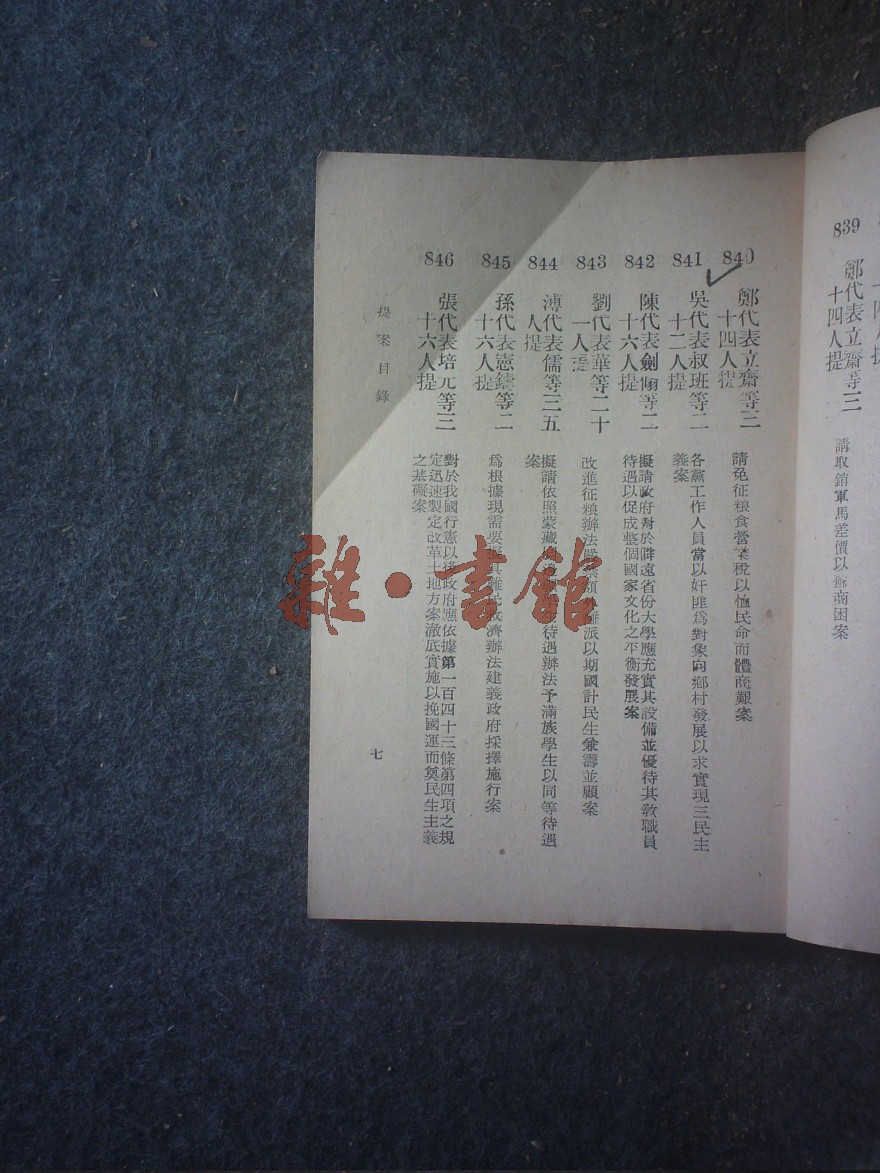 839
鄭代表立齋等三
十四人提
請取銷軍馬差價以蘇商困案
840
鄭代表立齋等三
十四人提
請免征粮食營業稅以恤民命而體商艱案
841
吳代表叔班等二
十二人提
各黨工作人員當以奸匪爲對象向鄉村發展以求實現三民主
義案
842
陳代表劍翛等二
十六人提
擬請政府對於僻遠省份大學應充實其設備並優待其敎職員
待遇以促成整個國家文化之平衡發展案
843
劉代表華等二十
一人提
改進征粮辦法嚴禁額外攤派以期國計民生兼籌並顧案
844
溥代表儒等三五
人提
擬請依照蒙藏 待遇辦法予滿族學生以同等待遇
案
845
孫代表憲鑄等二
十六人提
爲根據現需要擬具難民救濟辦法建義政府採擇施行案
846
張代表培元等三
十六人提
對於我國行憲以後政府應依據第一百四十三條第四項之規
定迅速製定改革土地方案澈底實施以挽國運而奠民生主義
之基礎案
提案目錄
七
雜·書館